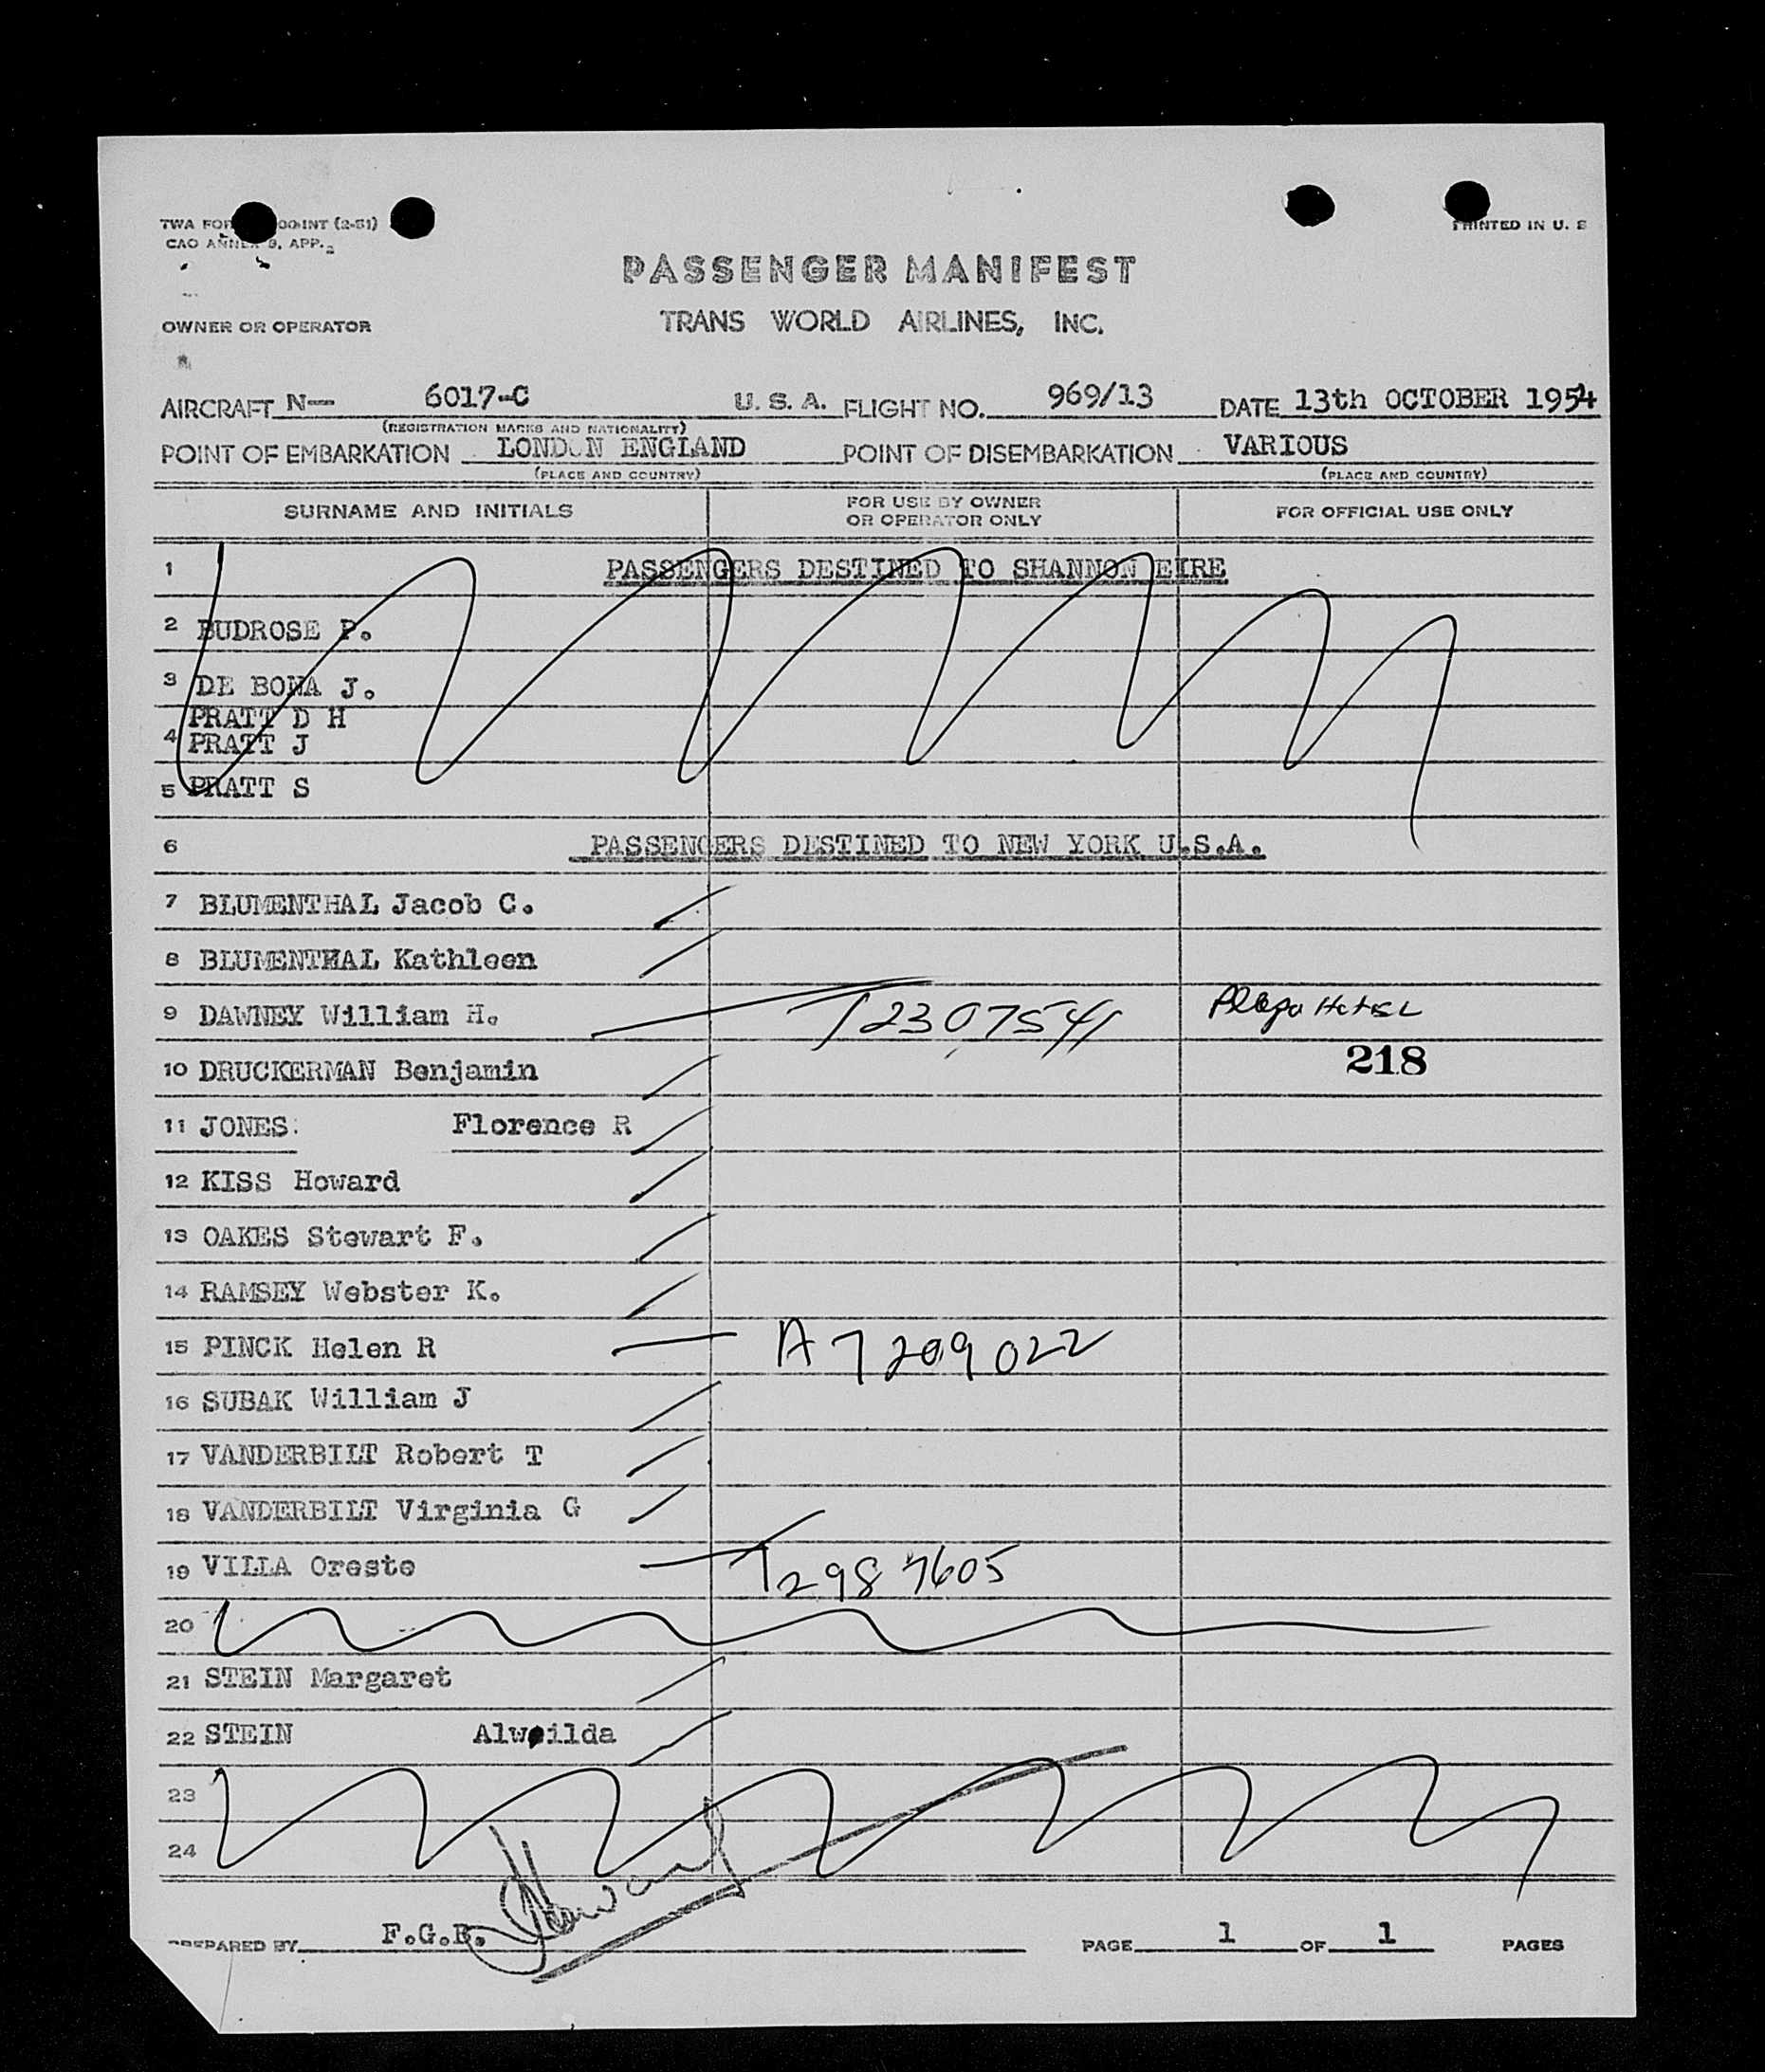 TWA FOR OO-INT (2-51)
PRINTED IN U. S
CAO ANNEX 9, APP. 2
PASSENGER MANIFEST
OWNER OR OPERATOR
TRANS WORLD AIRLINES, INC.
AIRCRAFT N— 6017-C U. S. A. FLIGHT NO. 969/13 DATE 13th OCTOBER 1954
(REGISTRATION MARKS AND NATIONALITY)
POINT OF EMBARKATION LONDON ENGLAND POINT OF DISEMBARKATION VARIOUS
(PLACE AND COUNTRY) (PLACE AND COUNTRY)
SURNAME AND INITIALS FOR USE BY OWNER OR OPERATOR ONLY FOR OFFICIAL USE ONLY
1 PASSENGERS DESTINED TO SHANNON EIRE
2 BUDROSE P.
3 DE BONA J.
PRATT D H
4 PRATT J
5 PRATT S
6 PASSENGERS DESTINED TO NEW YORK U.S.A.
7 BLUMENTHAL Jacob C.
8 BLUMENTHAL Kathleen
9 DAWNEY William H. T2307541 Plaza Hotel
10 DRUCKERMAN Benjamin 218
11 JONES Florence R
12 KISS Howard
13 OAKES Stewart F.
14 RAMSEY Webster K.
15 PINCK Helen R A7209022
16 SUBAK William J
17 VANDERBILT Robert T
18 VANDERBILT Virginia G
19 VILLA Oreste T2987605
20
21 STEIN Margaret
22 STEIN Alweilda
23
24
PREPARED BY F.G.B. PAGE 1 OF 1 PAGES